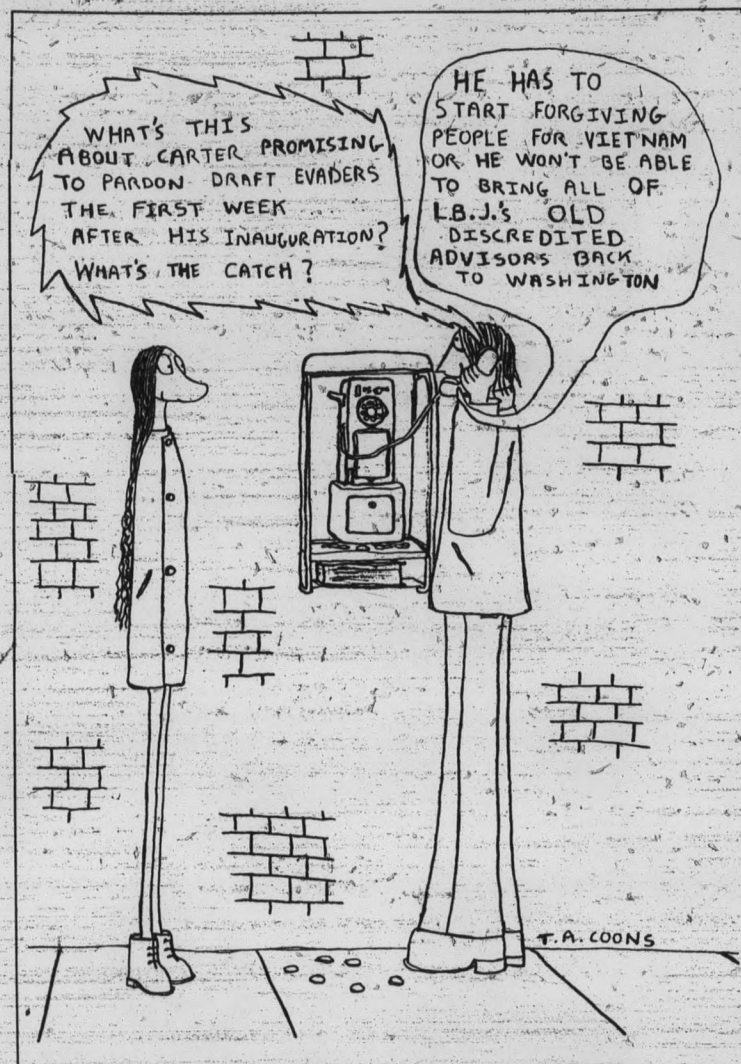 WHAT'S THIS
ABOUT CARTER PROMISING
TO PARDON DRAFT EVADERS
THE FIRST WEEK
AFTER HIS INAUGURATION?
WHAT'S THE CATCH?
HE HAS TO
START FORGIVING
PEOPLE FOR VIETNAM
OR HE WON'T BE ABLE
TO BRING ALL OF
L.B.J.'s OLD
DISCREDITED
ADVISORS BACK
TO WASHINGTON
T.A. COONS